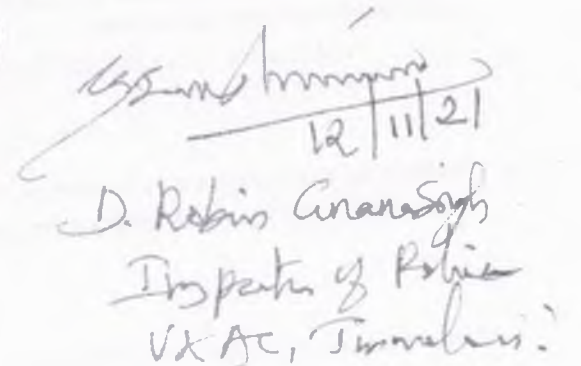 12/11/21
D. Robin Gnanasingh
Inspector of Police
V&AC, Tirunelveli.